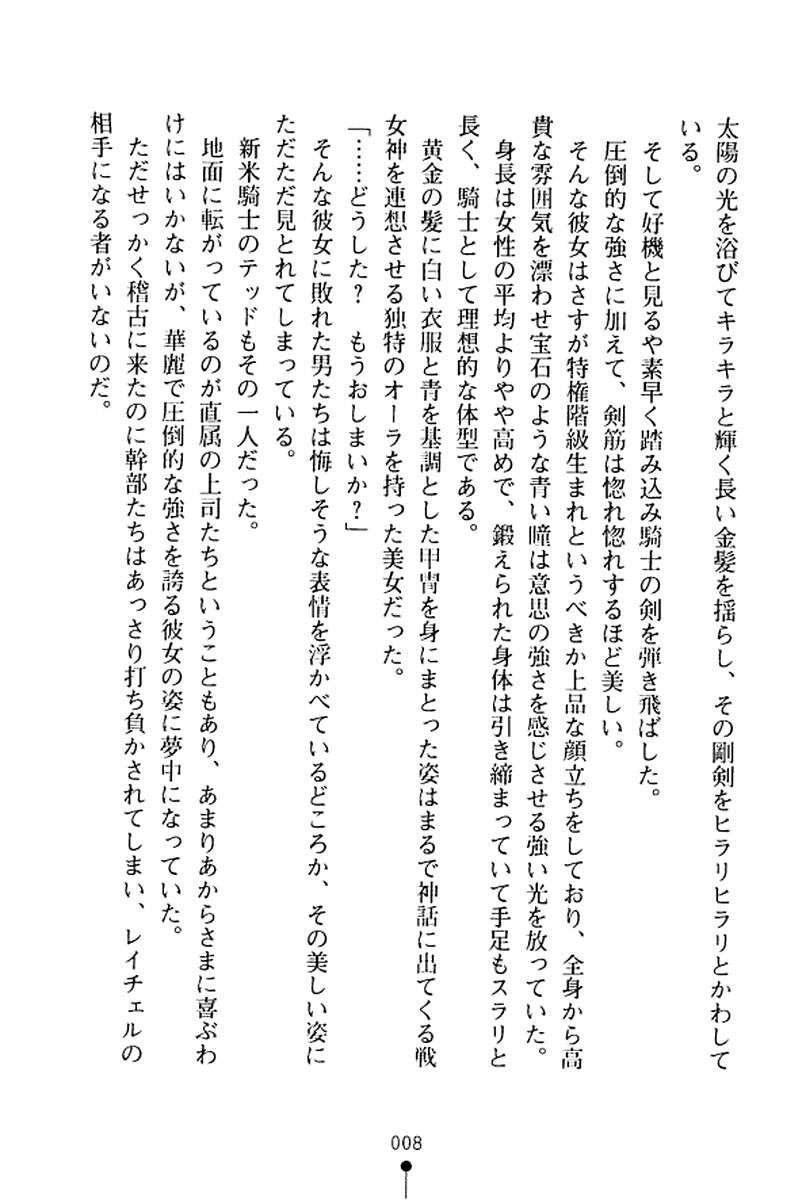 太陽の光を浴びてキラキラと輝く長い金髪を揺らし、その剛剣をヒラリヒラリとかわして
いる。
そして好機と見るや素早く踏み込み騎士の剣を弾き飛ばした。
圧倒的な強さに加えて、剣筋は惚れ惚れするほど美しい。
そんな彼女はさすが特権階級生まれというべきか上品な顔立ちをしており、全身から高
貴な雰囲気を漂わせ宝石のような青い瞳は意思の強さを感じさせる強い光を放っていた。
身長は女性の平均よりやや高めで、鍛えられた身体は引き締まっていて手足もスラリと
長く、騎士として理想的な体型である。
黄金の髪に白い衣服と青を基調とした甲冑を身にまとった姿はまるで神話に出てくる戦
女神を連想させる独特のオーラを持った美女だった。
「……どうした？　もうおしまいか？」
そんな彼女に敗れた男たちは悔しそうな表情を浮かべているどころか、その美しい姿に
ただただ見とれてしまっている。
新米騎士のテッドもその一人だった。
地面に転がっているのが直属の上司たちということもあり、あまりあからさまに喜ぶわ
けにはいかないが、華麗で圧倒的な強さを誇る彼女の姿に夢中になっていた。
ただせっかく稽古に来たのに幹部たちはあっさり打ち負かされてしまい、レイチェルの
相手になる者がいないのだ。
008